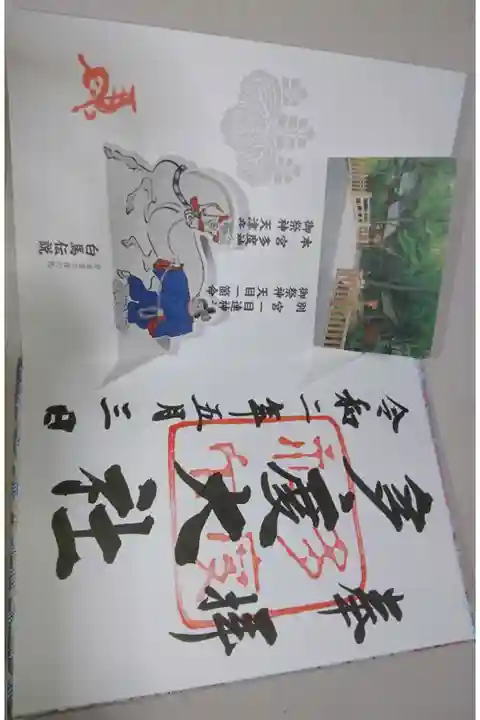 奉拝
多度大社
令和二年五月三日
別宮 一目連神社
御祭神 天目一箇命
本宮 多度神
御祭神 天津
白馬伝説
馬